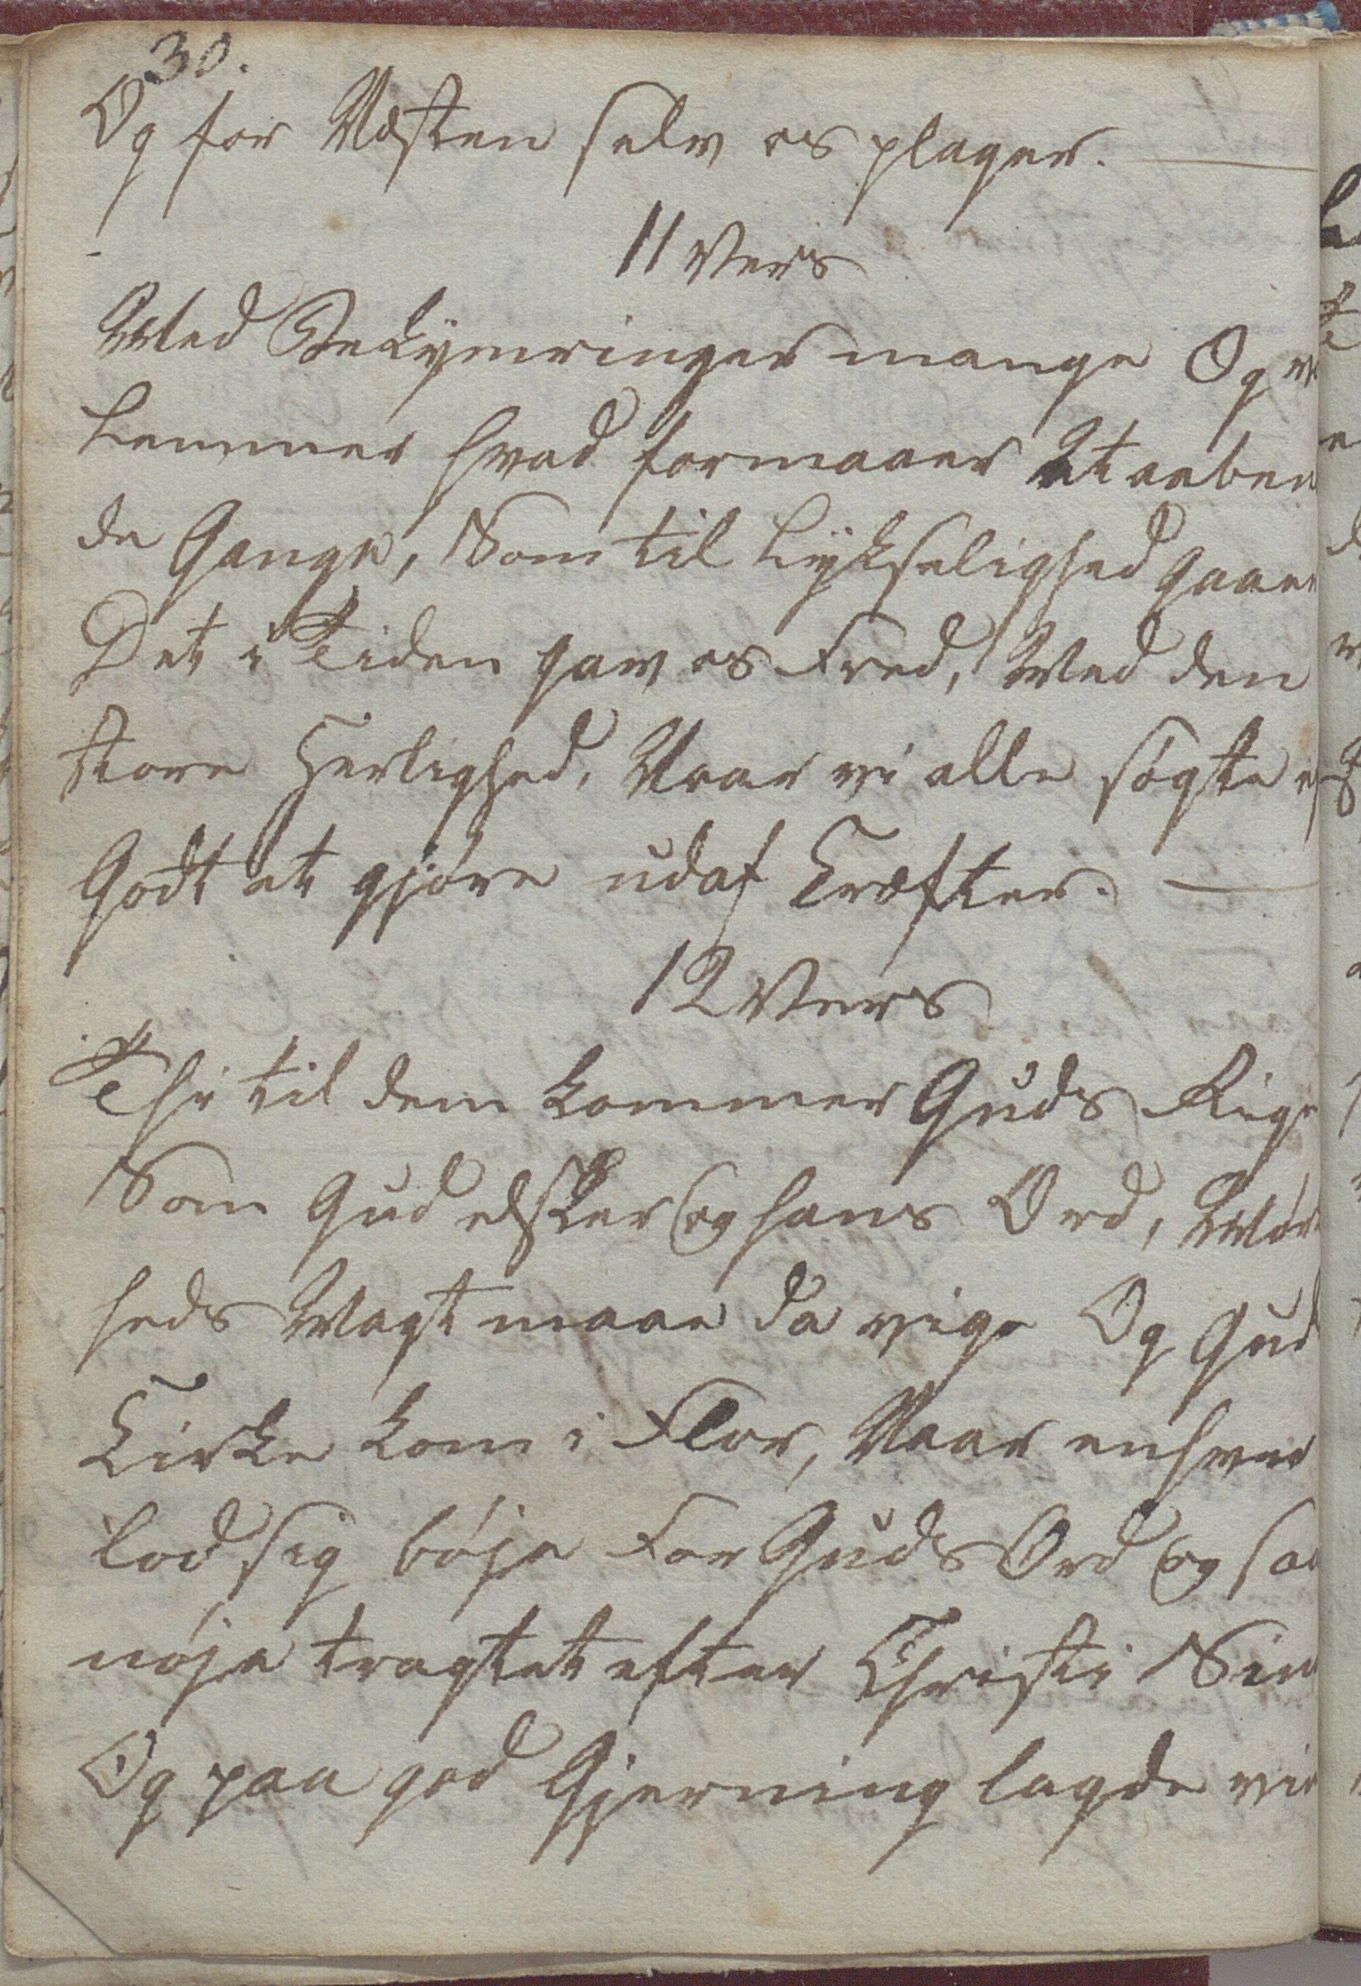 30.
Og for Næsten selv os plager.
11 Vers
Med Bekymringer mange Og
Lemmer hvad formaaer At aaben
de Gange, Som til Lyksalighed gaaer
Det i Tiden gav os Fred, Med den
store Herlighed, Naar vi alle søgte
Godt at gjøre udaf Kræfter.
12 Vers
Thi til dem kommer Guds Rige
Som Gud elsker og hans Ord, Mør
heds Magt maae da vige Og Gud
Kirke kom i Flor, Naar enhver
lod sig bøje For Guds Ord og saa
nøje tragtet efter Christi Sin
Og paa god Gjerning lagde vin